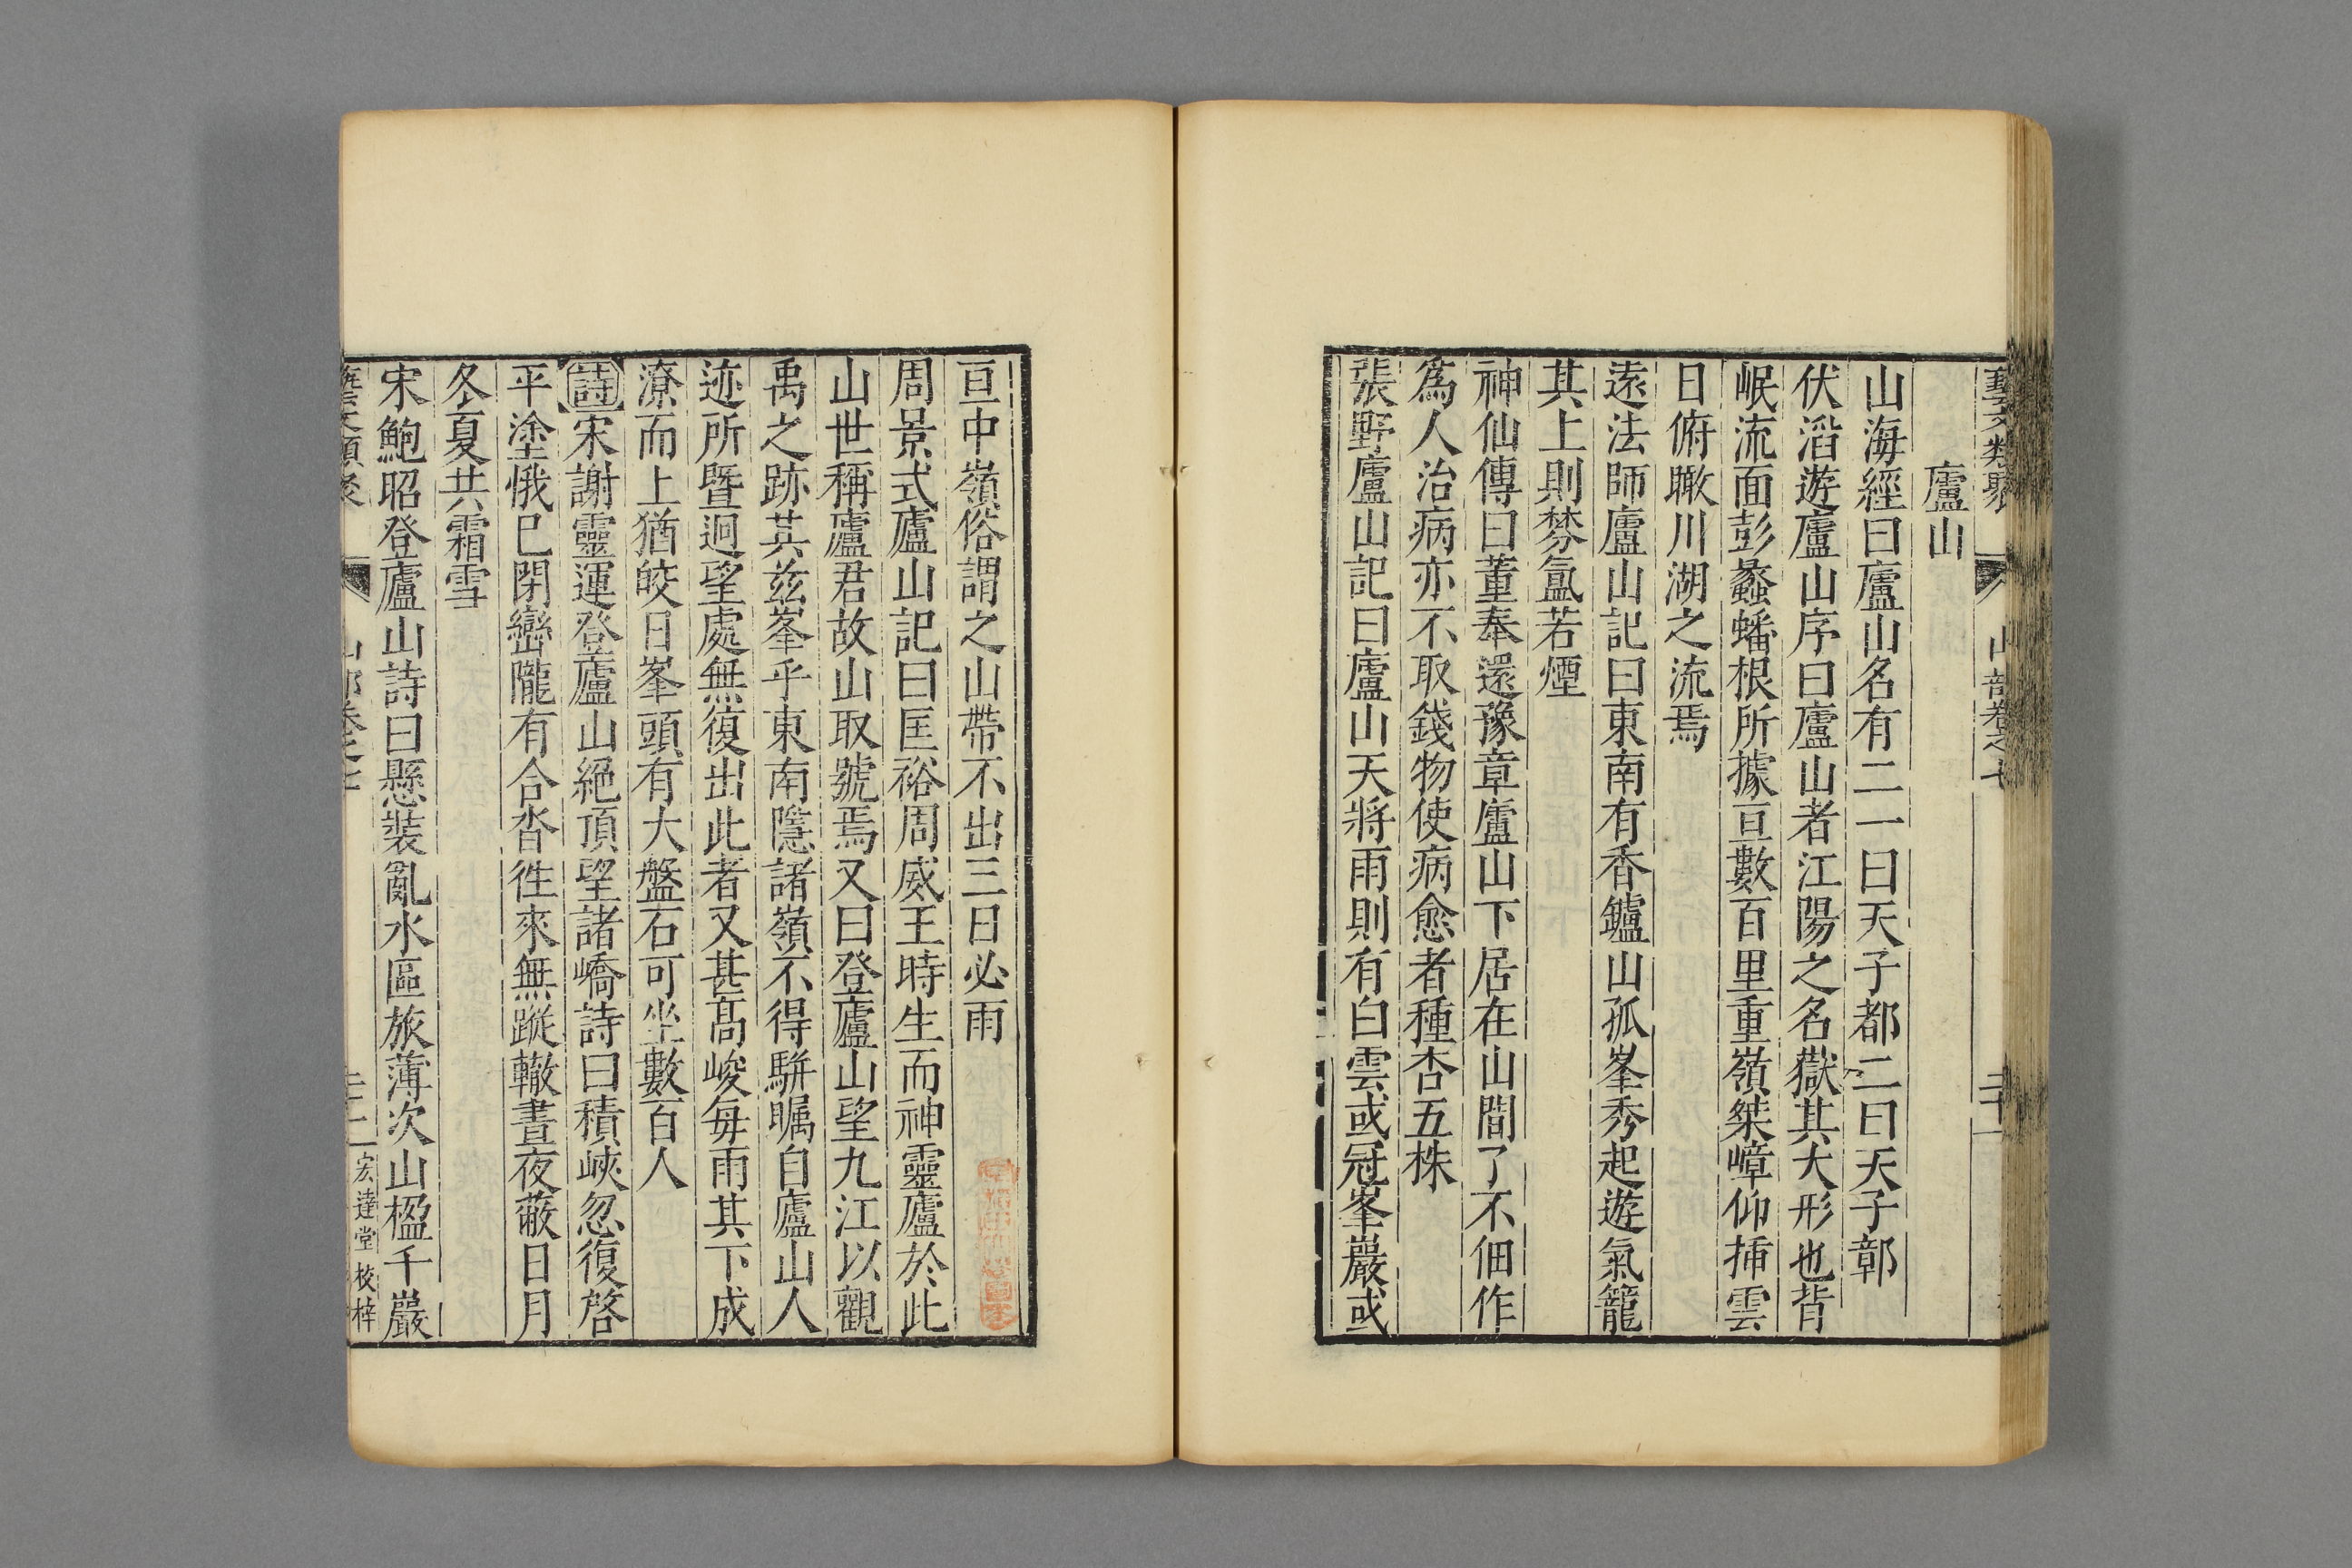 藝文類聚 山部卷之七 二十一
廬山
山海經曰廬山名有二一曰天子都二曰天子鄣
伏滔遊廬山序曰廬山者江陽之名嶽其大形也背
岷流面彭蠡蟠根所據亘數百里重嶺桀嶂仰揷雲
日俯瞰川湖之流焉
遠法師廬山記曰東南有香鑪山孤峯秀起遊氣籠
其上則棼氳若煙
神仙傳曰董奉還豫章廬山下居在山間了不佃作
爲人治病亦不取錢物使病愈者種杏五株
張野廬山記曰廬山天將雨則有白雲或冠峯巖或
亘中嶺俗謂之山帶不出三日必雨
周景式廬山記曰匡裕周威王時生而神靈廬於此
山世稱廬君故山取號焉又曰登廬山望九江以觀
禹之跡其茲峯乎東南隱諸嶺不得駢矚自廬山人
迹所曁迥望處無復出此者又甚高峻每雨其下成
潦而上猶皎日峯頭有大盤石可坐數百人
詩宋謝靈運登廬山絕頂望諸嶠詩曰積峽忽復啓
平塗俄已閉巒隴有合沓徃來無蹤轍晝夜蔽日月
冬夏共霜雪
宋鮑昭登廬山詩曰懸裝亂水區旅薄次山楹千巖
藝文類聚 山部卷之七 二十一 宏達堂校梓